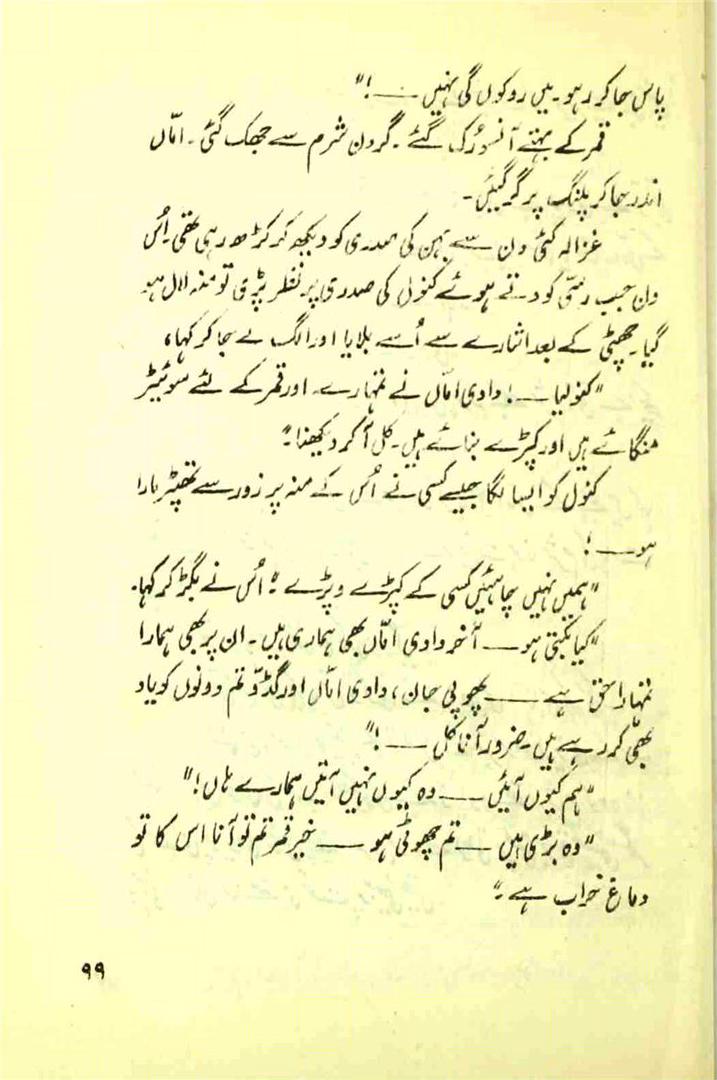 پاس جا کر رہو۔ میں روکوں گی نہیں ——!"
قمر کے بہتے آنسو رُک گئے۔ گردن شرم سے جھک گئی۔ امّاں
اندر جا کر پلنگ پر گر گئیں۔
غزالہ کئی دن سے بہن کی صدری کو دیکھ کر کڑھ رہی تھی۔ اُس
دن جب رسّی کودتے ہوئے کنول کی صدری پر نظر پڑی تو منہ لال ہو
گیا۔ چھٹی کے بعد اشارے سے اُسے بلایا اور الگ لے جا کر کہا،
"کنولیا ——! دادی امّاں نے تمہارے اور قمر کے لئے سوئیٹر
منگائے ہیں اور کپڑے بنائے ہیں۔ کل آ کر دیکھنا۔"
کنول کو ایسا لگا جیسے کسی نے اُس کے منہ پر زور سے تھپڑ مارا
ہو ——!
"ہمیں نہیں چاہئیں کسی کے کپڑے وپڑے۔" اُس نے بگڑ کر کہا۔
"کیا بکتی ہو —— آخر دادی امّاں بھی ہماری ہیں۔ ان پر بھی ہمارا
تمہارا حق ہے —— پھوپی جان، دادی امّاں اور گڈّو تم دونوں کو یاد
بھی کر رہے ہیں۔ ضرور آنا کل ——!"
"ہم کیوں آئیں —— وہ کیوں نہیں آتیں ہمارے ہاں!"
"وہ بڑی ہیں —— تم چھوٹی ہو —— خیر قمر تم تو آنا اس کا تو
دماغ خراب ہے۔"
۹۹